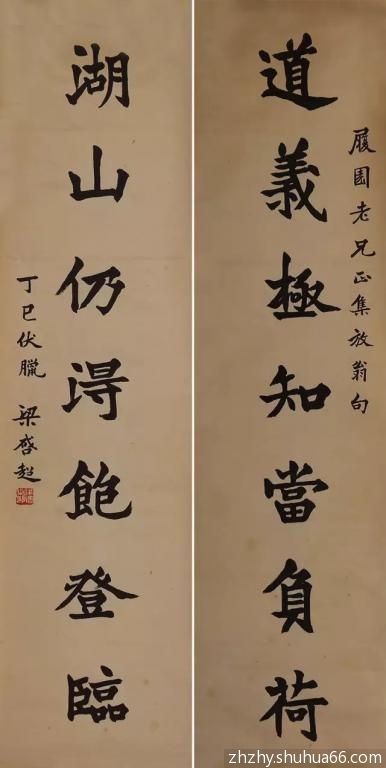 履園老兄正集放翁句
道義極知當負荷
湖山仍得飽登臨
丁巳伏臘 梁啓超
zhzhy.shuhua66.com